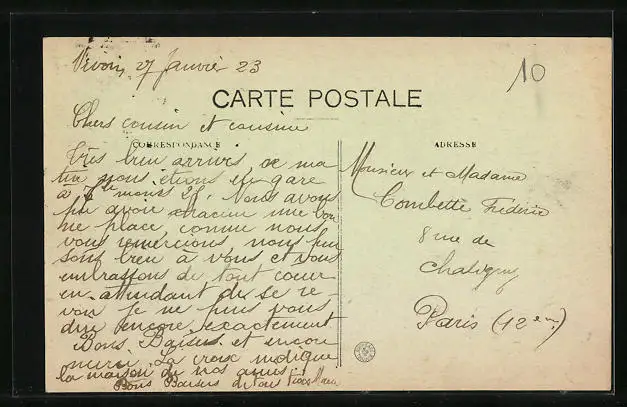 27 Janvier 23
10
CARTE POSTALE
Chers cousin et cousine
CORRESPONDANCE
ADRESSE
Très bien arrivés ce ma
tin nous étions en gare
à 7h moins 25. Nous avons
pu avoir chacun une bon
ne place comme nous
vous remercions, nous pen
sons bien à vous et vous
embrassons de tout coeur
en attendant de se re
voir je ne puis vous
dire encore exactement
Bons Baisers et encore
merci. La croix indique
la maison de nos amis
Bons Baisers de tous
Monsieur et Madame
Combette Fréderic
8 rue de
Chaligny
Paris (12em)